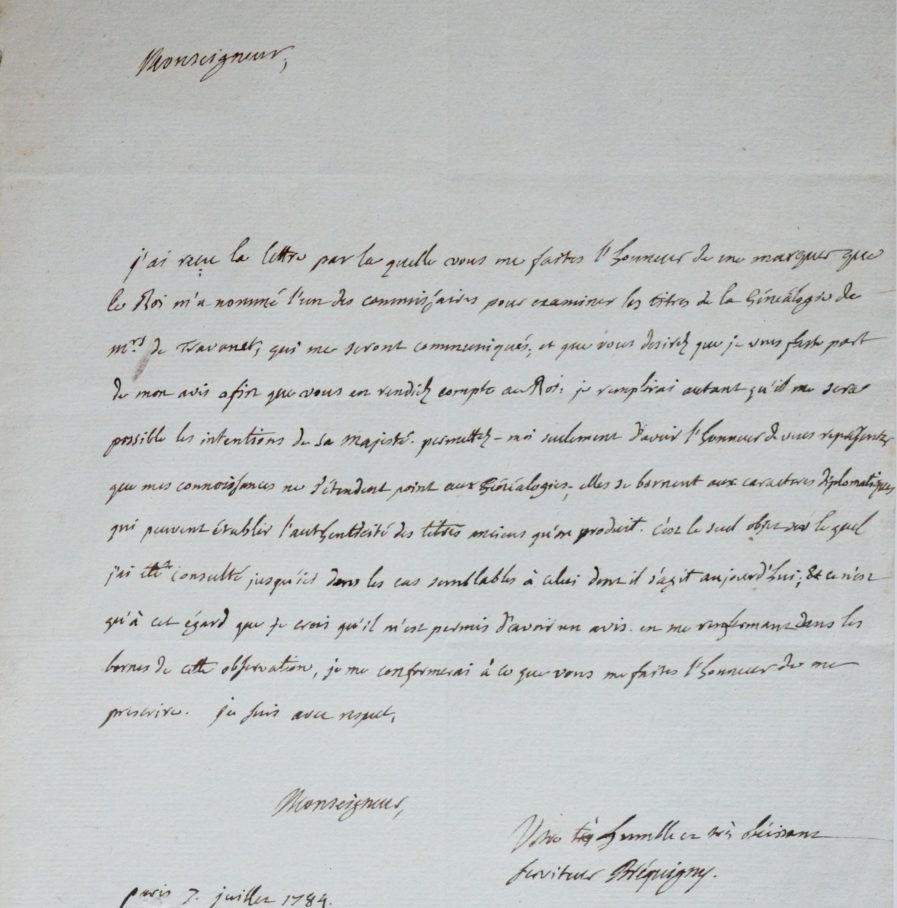 Monseigneur,
j'ai reçu la lettre par la quelle vous me faites l'honneur de me marquer que
le Roi m'a nommé l'un des commissaires pour examiner les titres de la Généalogie de
mrs de Travanet, qui me seront communiqués, et que vous desirez que je vous fasse part
de mon avis afin que vous en rendiez compte au Roi. je remplirai autant qu'il me sera
possible les intentions de sa majesté. permettez-moi seulement d'avoir l'honneur de vous représenter
que mes connoissances ne s'étendent point aux Généalogies, elles se bornent aux caracteres diplomatiques
qui peuvent établir l'authenticité des titres anciens qu'on produit. c'est le seul objet sur le quel
j'ai été consulté jusqu'ici dans les cas semblables à celui dont il s'agit aujourd'hui, & ce n'est
qu'à cet égard que je crois qu'il m'est permis d'avoir un avis. en me renfermant dans les
bornes de cette observation, je me conformerai à ce que vous me faites l'honneur de me
prescrire. je suis avec respect,
Monseigneur,
Votre très humble et très obéissant
serviteur Bréquigny.
paris 7. juillet 1784.